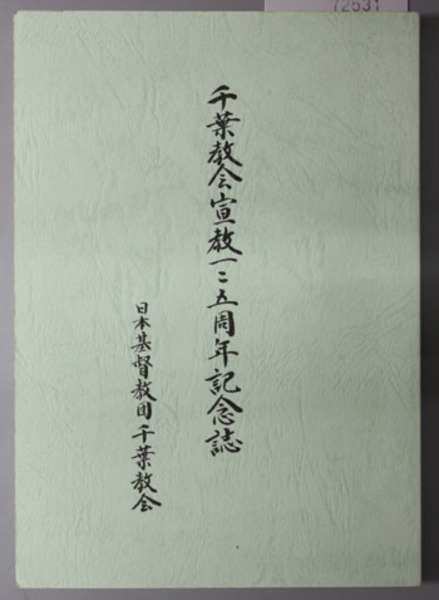 千葉教会宣教一二五周年記念誌
日本基督教団千葉教会